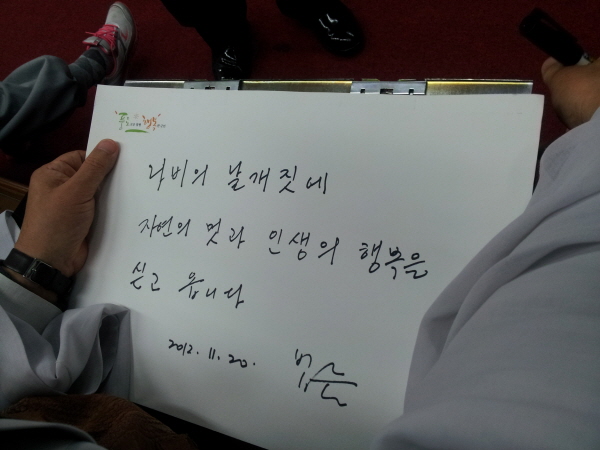 나비의 날개짓에
자연의 멋과 인생의 행복을
싣고 옵니다
2012. 11. 20.
법륜